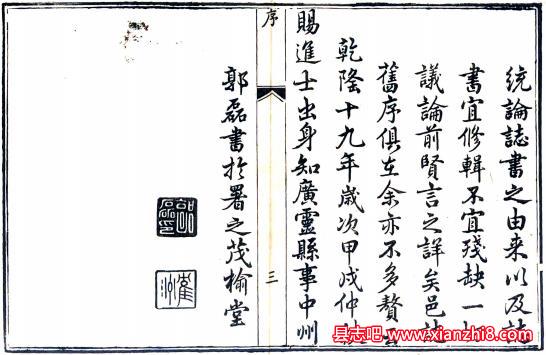 統論誌書之由来以及誌
書宜修輯不宜殘缺一切
議論前賢言之詳矣邑誌
舊序俱在余亦不多贅云
乾隆十九年歲次甲戌仲秋
賜進士出身知廣靈縣事中州
序
三
郭磊書於署之茂榆堂
郭磊印
县志吧 www.xianzhi8.com